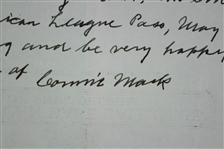 ican League Pass, May
g and be very happy
of Connie Mack